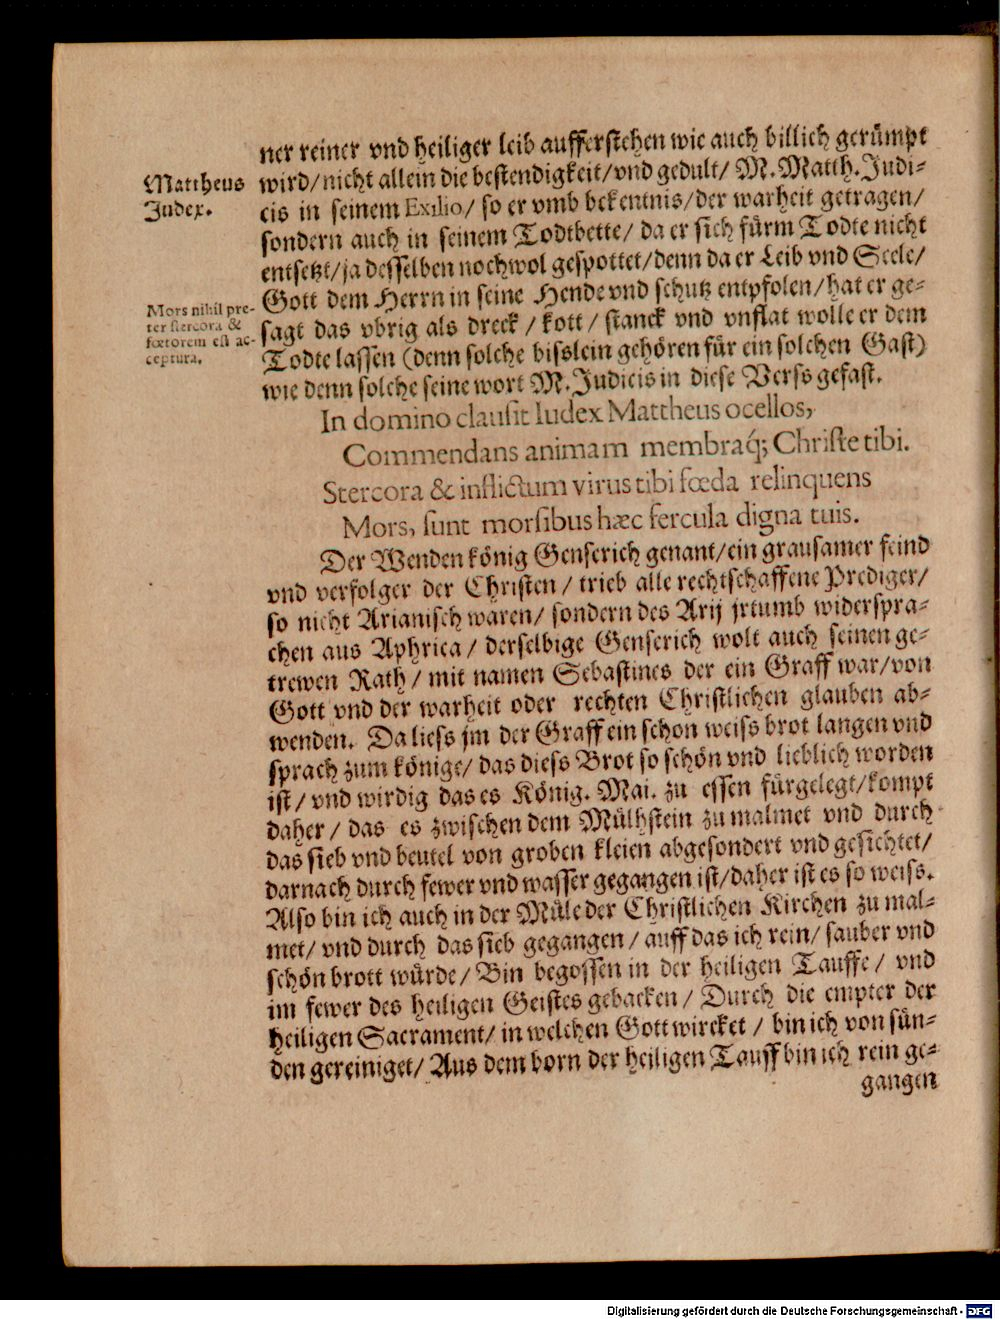 ner reiner vnd heiliger leib aufferstehen wie auch billich gerümpt
Mattheus
Judex.
wird/nicht allein die bestendigkeit/vnd gedult/ M. Matth. Judi-
cis in seinem Exilio/ so er vmb bekentnis/der warheit getragen/
sondern auch in seinem Todtbette/ da er sich fürm Todte nicht
entsetzt/ja desselben nochwol gespottet/denn da er Leib vnd Seele/
Mors nihil pre-
ter stercora &
fœtorem est ac-
ceptura.
Gott dem Herrn in seine Hende vnd schutz entpfolen/hat er ge-
sagt das vbrig als dreck/ kott/ stanck vnd vnflat wolle er dem
Todte lassen (denn solche bisslein gehören für ein solchen Gast)
wie denn solche seine wort M. Judicis in diese Verss gefast.
In domino clausit Iudex Mattheus ocellos,
Commendans animam membraq́; Christe tibi.
Stercora & inflictum virus tibi fœda relinquens
Mors, sunt morsibus hæc fercula digna tuis.
Der Wenden könig Genserich genant/ein grausamer feind
vnd verfolger der Christen/ trieb alle rechtschaffene Prediger/
so nicht Arianisch waren/ sondern des Arij jrtumb widerspra-
chen aus Aphrica/ derselbige Genserich wolt auch seinen ge-
trewen Rath/ mit namen Sebastines der ein Graff war/von
Gott vnd der warheit oder rechten Christlichen glauben ab-
wenden. Da liess jm der Graff ein schon weiss brot langen vnd
sprach zum könige/ das diess Brot so schön vnd lieblich worden
ist/ vnd wirdig das es König. Mai. zu essen fürgelegt/kompt
daher/ das es zwischen dem Mülhstein zu malmet vnd durch
das sieb vnd beutel von groben kleien abgesondert vnd gesichtet/
darnach durch fewer vnd wasser gegangen ist/daher ist es so weiss.
Also bin ich auch in der Müle der Christlichen Kirchen zu mal-
met/ vnd durch das sieb gegangen/ auff das ich rein/ sauber vnd
schön brott würde/ Bin begossen in der heiligen Tauffe/ vnd
im fewer des heiligen Geistes gebacken/ Durch die empter der
heiligen Sacrament/ in welchen Gott wircket/ bin ich von sün-
den gereiniget/ Aus dem born der heiligen Tauff bin ich rein ge-
gangen
Digitalisierung gefördert durch die Deutsche Forschungsgemeinschaft - DFG